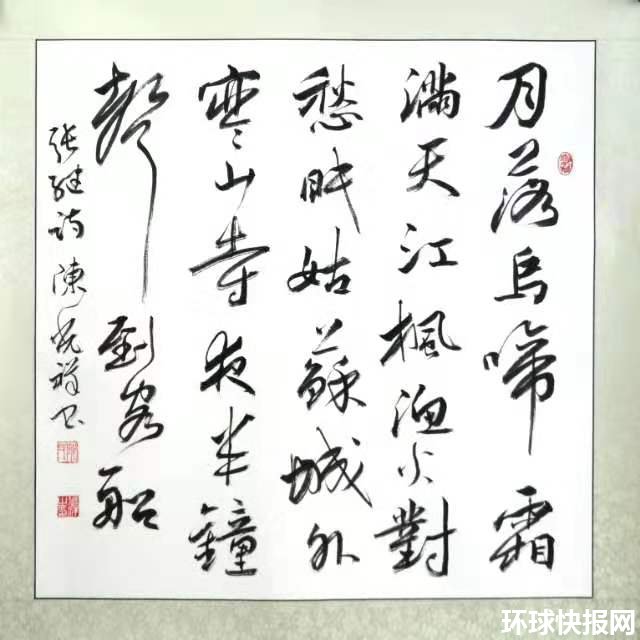 月落烏啼霜
滿天江楓漁火對
愁眠姑蘇城外
寒山寺夜半鐘
聲到客船
张继诗 陳 祥书
环球快报网